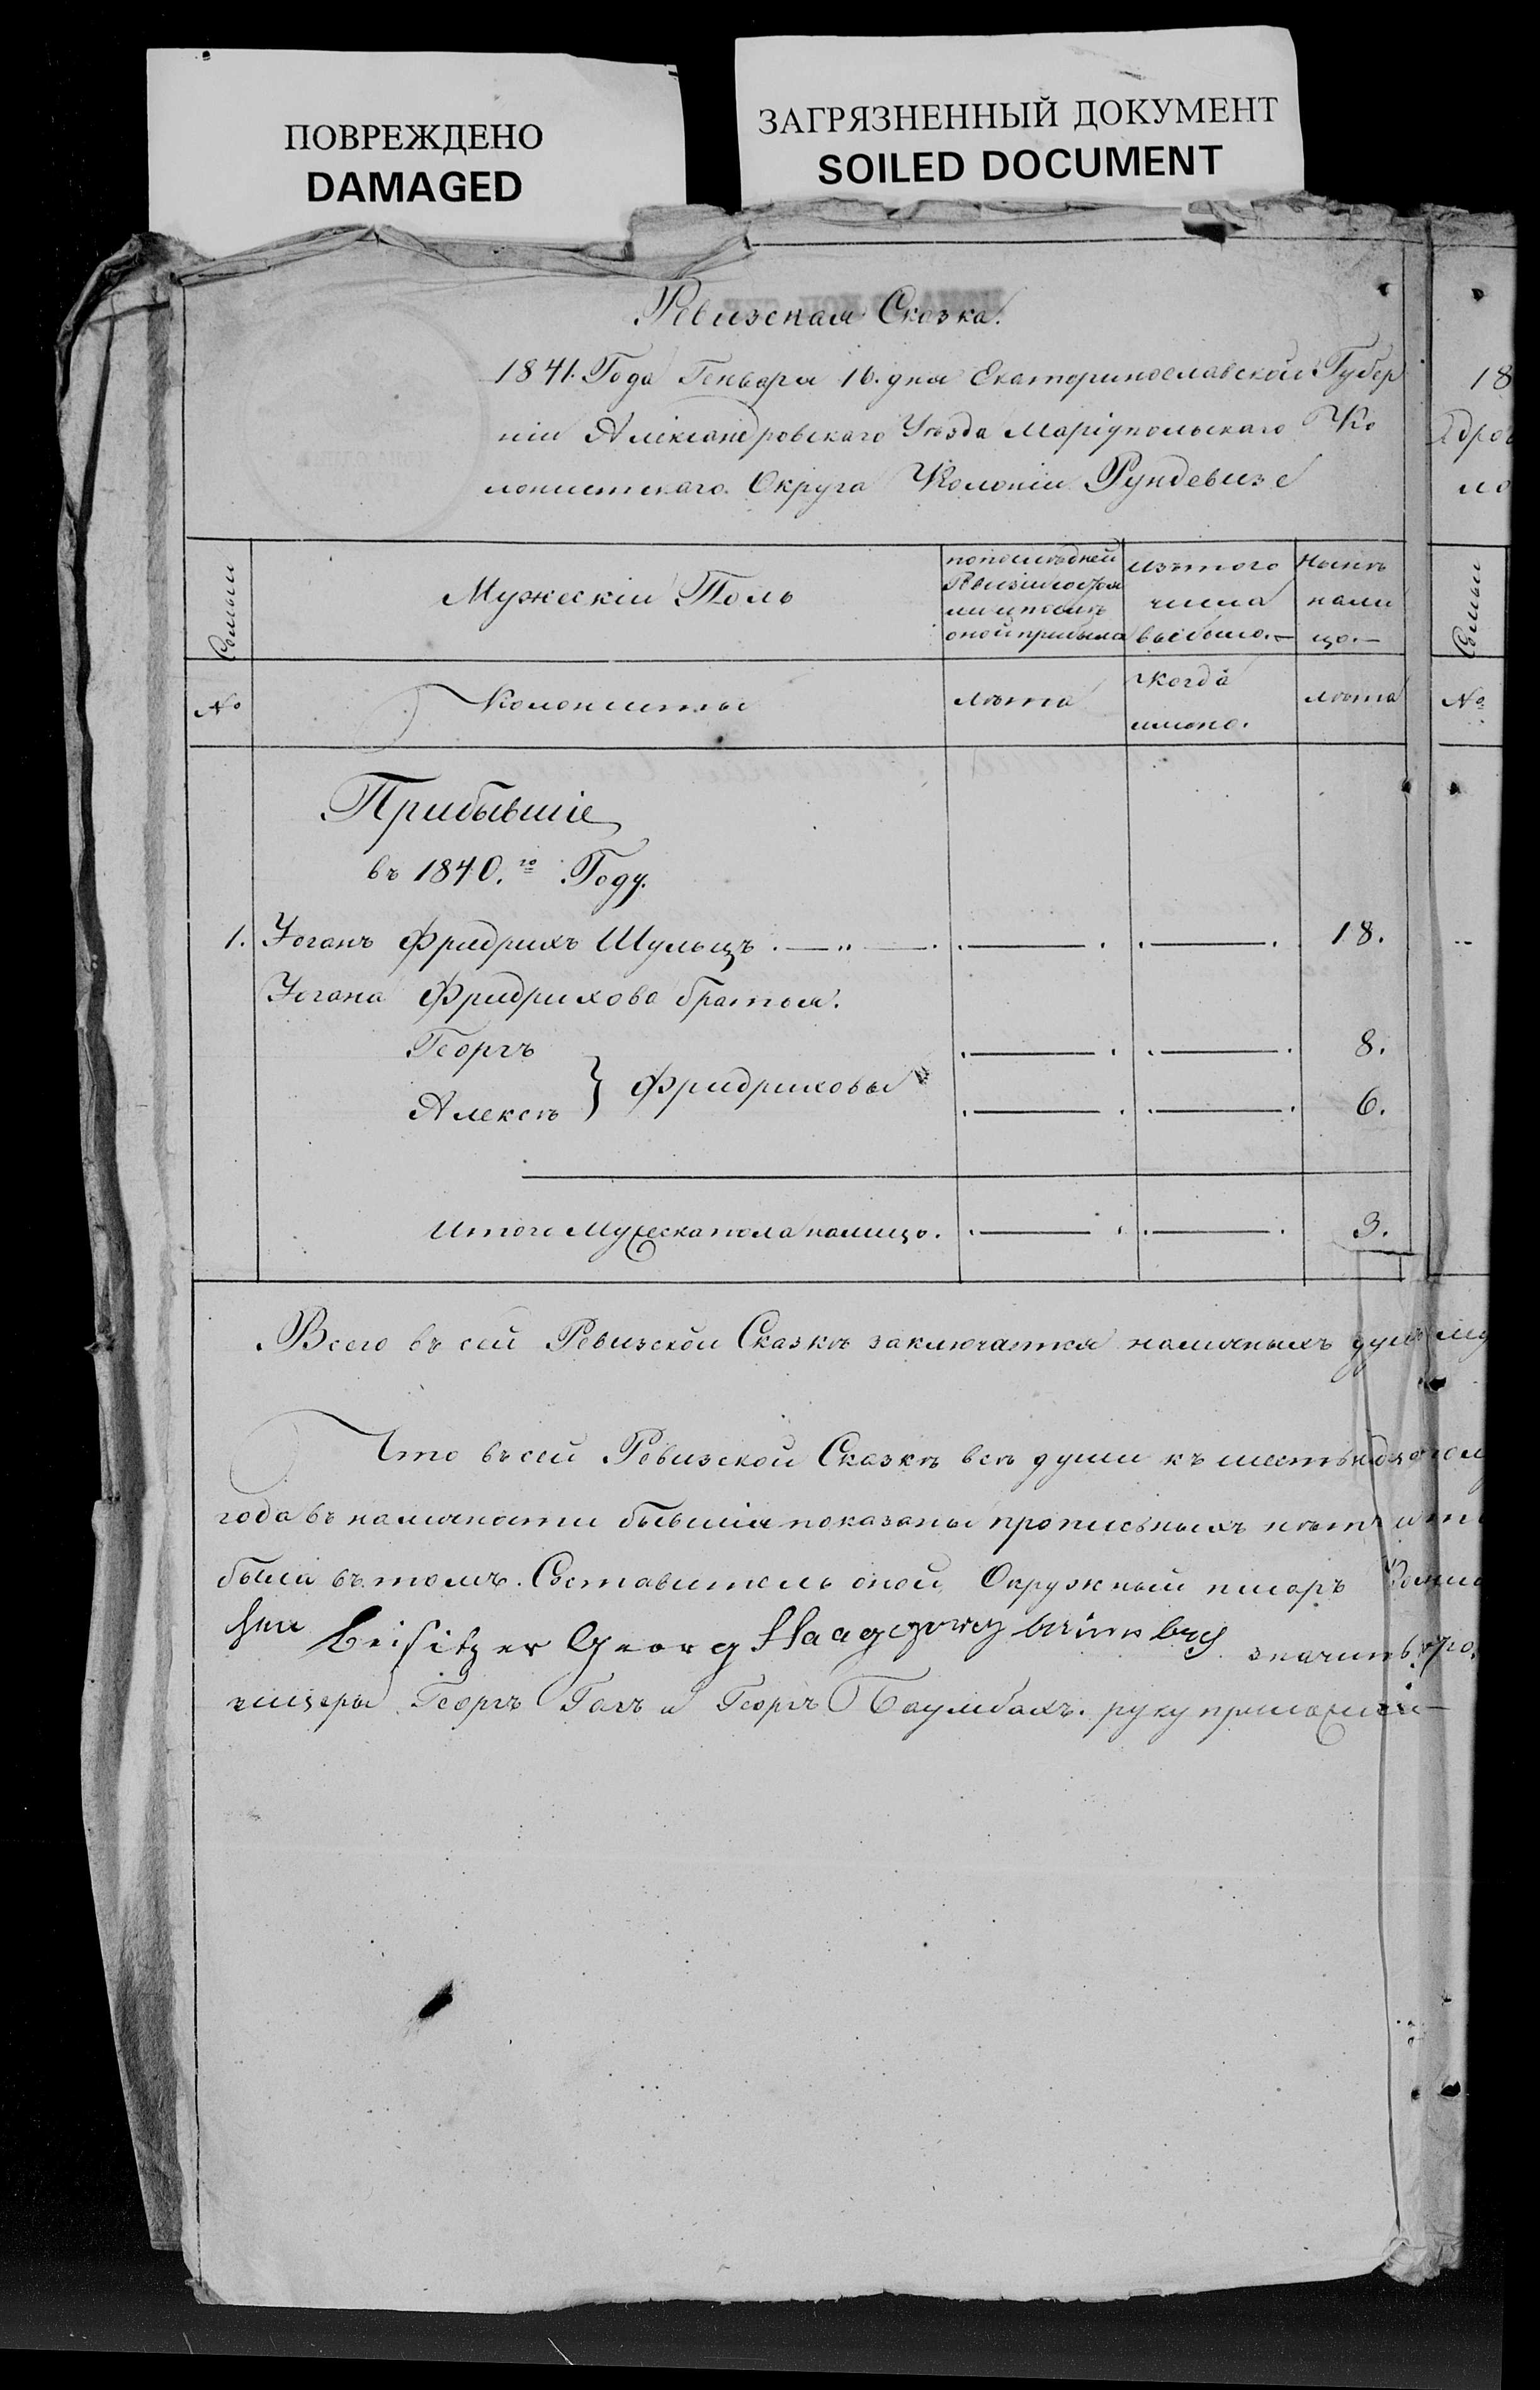 ПОВРЕЖДЕНО
DAMAGED
ЗАГРЯЗНЕННЫЙ ДОКУМЕНТ
SOILED DOCUMENT
Ревизская Сказка.
1841. Года Генваря 16. дня Екатеринославской Губер
ніи Александровскаго Уѣзда Маріупольскаго Ко
лонистскаго Округа Колоніи Рундевизе
Семьи
Мужескій Полъ
по последней
Ревизіи состоя
ли и послѣ
оной прибыло
Изъ того
числа
выбыло.
Нынѣ
нали
цо.
№
Колонисты
лѣта
Когда
имяно.
лѣта
Прибывшіе
въ 1840.го Году.
1. Іоганъ Фридрихъ Шульцъ 18.
Іогана Фридриха братья.
Георгъ 8.
Фридриховы
Алексѣ 6.
Итого Мужеска пола налицо. 3.
Всего въ сей Ревизской Сказкѣ заключается наличныхъ душъ
Что въ сей Ревизской Сказкѣ всѣ души къ
года въ наличности бывшія показаны прописныхъ нѣтъ
была въ томъ. Составитель оной Окружный писарь
Beisitzer Georg Haag
значитъ
Георгъ Гагъ и Георгъ Баумбахъ. руку приложили
18
№
Семьи